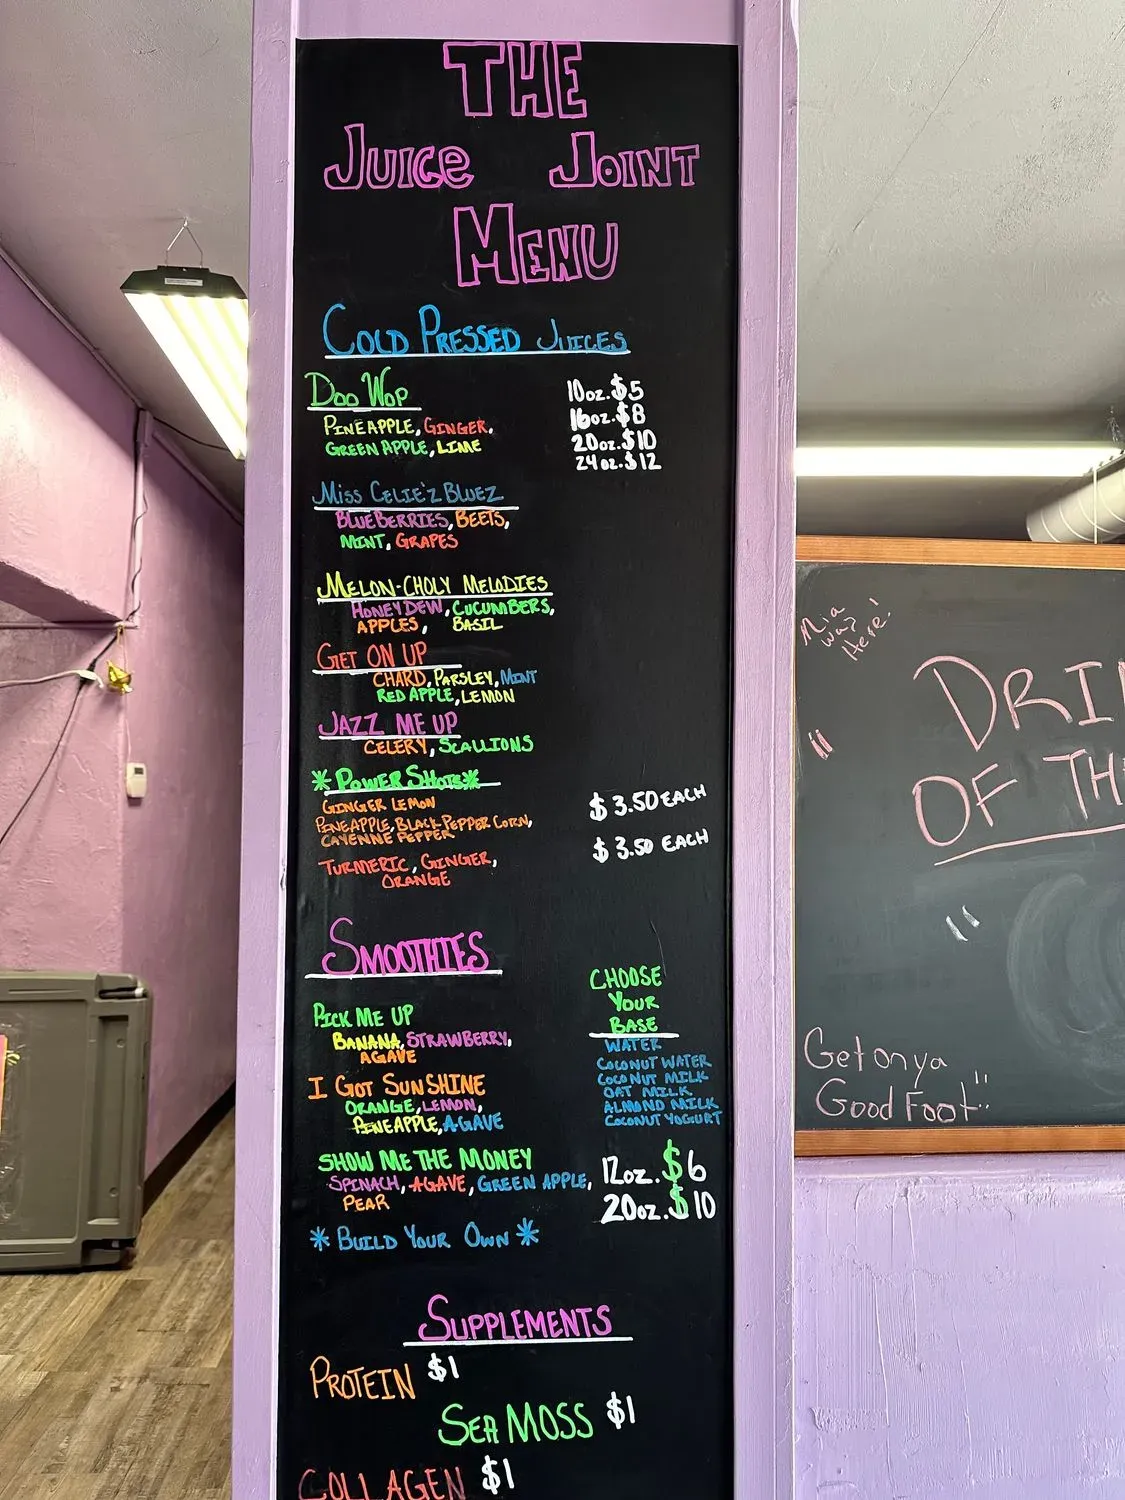 THE
JUICE JOINT
MENU
COLD PRESSED JUICES
DOO WOP
10oz. $5
PINEAPPLE, GINGER,
16oz. $8
GREEN APPLE, LIME
20oz. $10
24oz. $12
MISS CELIE'Z BLUEZ
BLUEBERRIES, BEETS,
MINT, GRAPES
MELON-CHOLY MELODIES
HONEYDEW, CUCUMBERS,
APPLES, BASIL
GET ON UP
CHARD, PARSLEY, MINT
RED APPLE, LEMON
JAZZ ME UP
CELERY, SCALLIONS
*POWER SHOTS*
GINGER LEMON
$3.50 EACH
PINEAPPLE, BLACK PEPPER CORN,
CAYENNE PEPPER
$3.50 EACH
TURMERIC, GINGER,
ORANGE
SMOOTHIES
CHOOSE
YOUR
BASE
WATER
COCONUT WATER
COCONUT MILK
OAT MILK
ALMOND MILK
COCONUT YOGURT
PICK ME UP
BANANA, STRAWBERRY,
AGAVE
I GOT SUNSHINE
ORANGE, LEMON,
PINEAPPLE, AGAVE
SHOW ME THE MONEY
SPINACH, AGAVE, GREEN APPLE,
PEAR
12oz. $6
20oz. $10
* BUILD YOUR OWN *
SUPPLEMENTS
PROTEIN $1
SEA MOSS $1
COLLAGEN $1
Mia
waz
Here!
"DRI
OF TH
"
Get on ya
Good Foot"